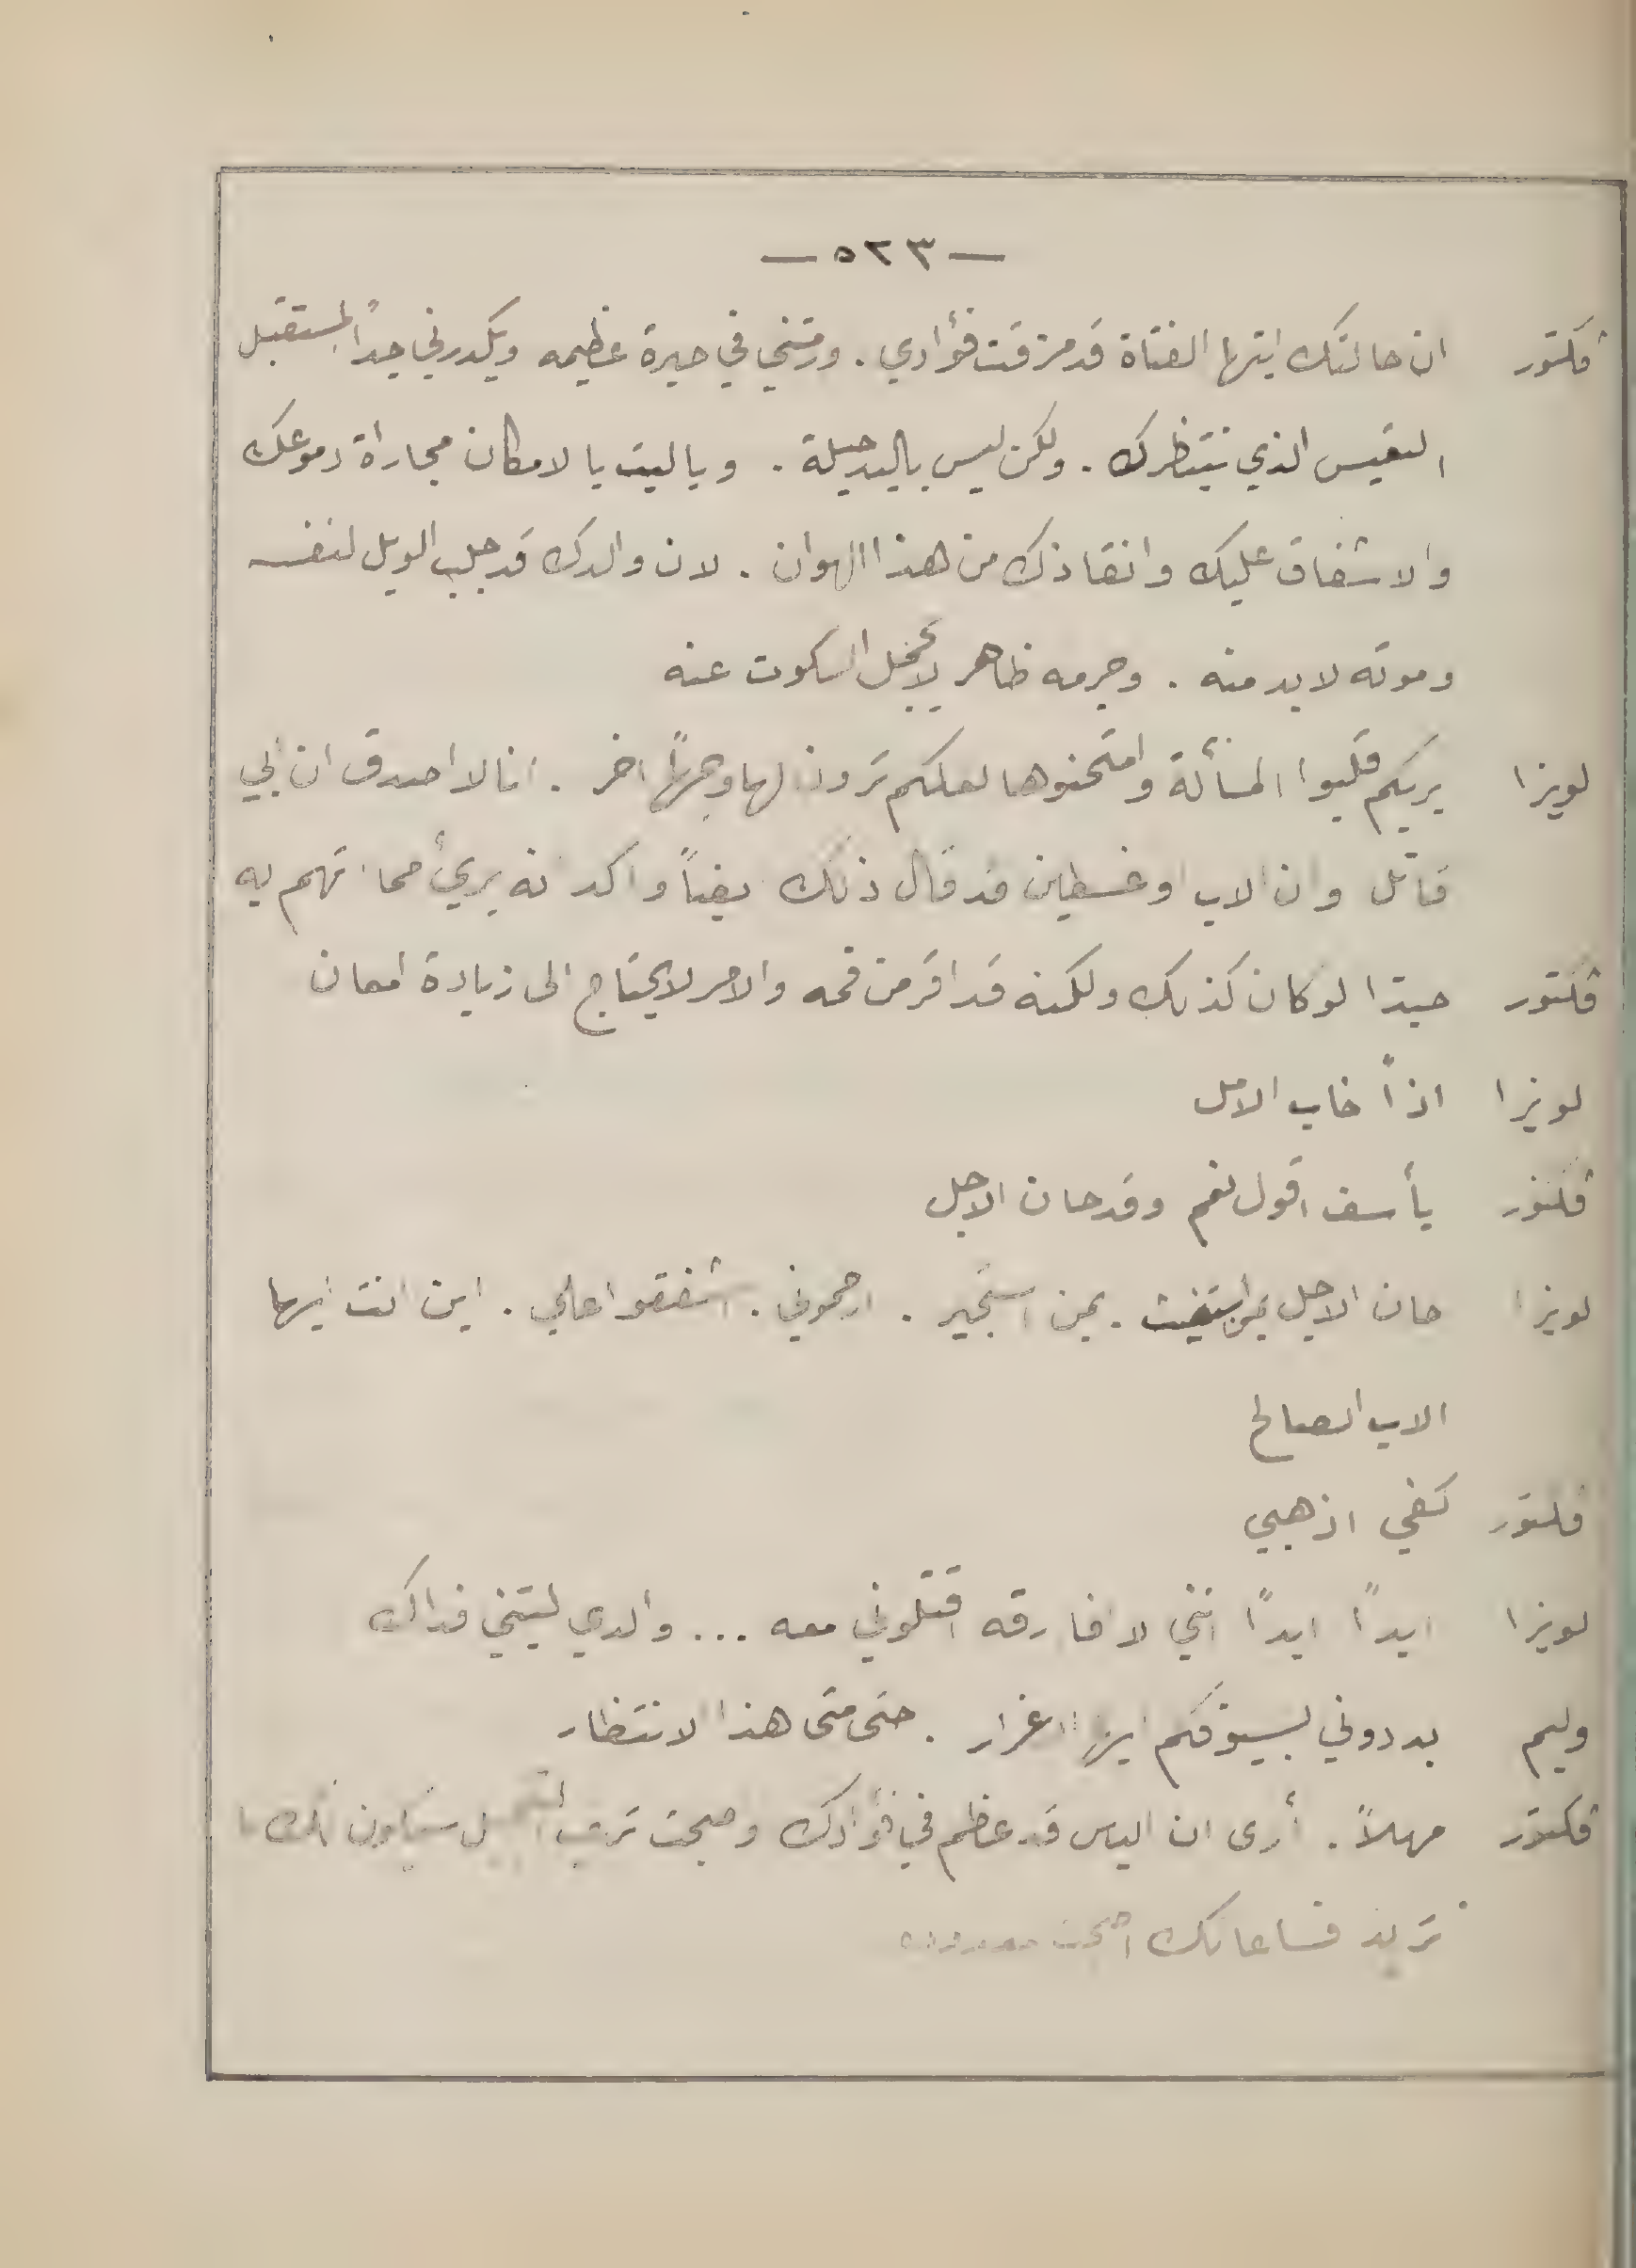 — ٥٢٣ —
ڤكتور ان حالتك ايتها الفتاة قد مزقت فؤادي . ورمتني في حيرة عظيمه ويكدرني جداً المستقبل
التعيس الذي ينتظرك . ولكن ليس باليد حيلة . ويا ليت بالامكان مجاراة دموعك
والاشفاق عليك وانقاذك من هذا الهوان . لان والدك قد جلب الويل لنفسه
وموته لا بد منه . وجرمه ظاهر لا يحتمل السكوت عنه
لويزا بربكم قلبوا المسألة وامتحنوها لعلكم ترون لها وجهاً اخر . انا لا اصدق ان ابي
قاتل وان الاب اوغسطين قد قال ذلك ايضاً واكد انه بريئ مما اتهم به
ڤكتور حبذا لو كان كذلك ولكنه قد اقر من فمه والامر لا يحتاج الى زيادة امعان
لويزا اذاً خاب الامل
ڤكتور بأسف اقول نعم وقد حان الاجل
لويزا حان الاجل بمن استغيث . بمن استجير . ارحموني . اشفقوا علي . اين انت ايها
الاب الصالح
ڤكتور كفي اذهبي
لويزا ابداً ابداً انني لا افارقه اقتلوني معه ... والدي ليتني فداك
وليم بددوني بسيوفكم ايها الغرار . حتى متى هذا الانتظار
ڤكتور مهلاً . أرى ان اليأس قد عظم في فؤادك واصبحت ترغب سيكون لك ما
تريد فساعاتك اصبحت معدودة